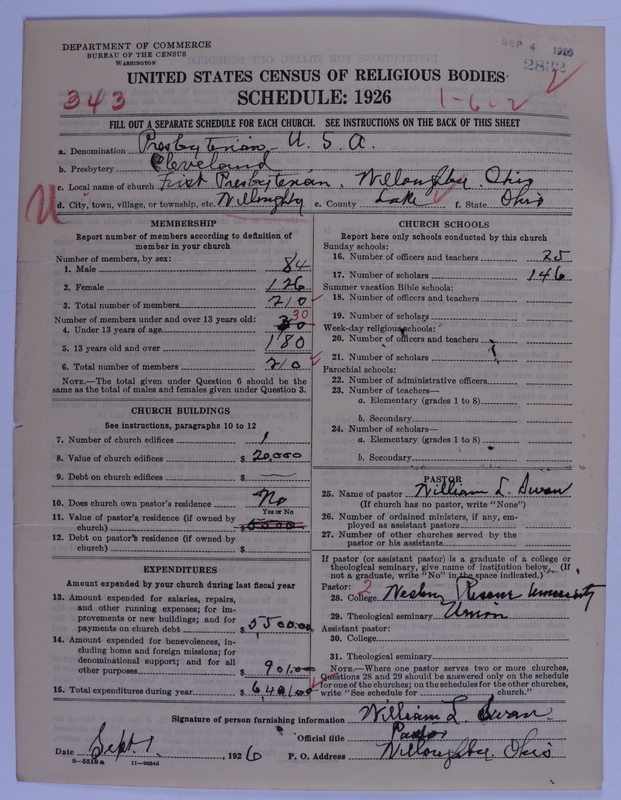 DEPARTMENT OF COMMERCE
BUREAU OF THE CENSUS
WASHINGTON
SEP 4 1926
2832
UNITED STATES CENSUS OF RELIGIOUS BODIES
SCHEDULE: 1926
343
1-6-2
FILL OUT A SEPARATE SCHEDULE FOR EACH CHURCH. SEE INSTRUCTIONS ON THE BACK OF THIS SHEET
a. Denomination Presbyterian U. S. A.
b. Presbytery Cleveland
c. Local name of church First Presbyterian, Willoughby, Ohio
d. City, town, village, or township, etc. Willoughby e. County Lake f. State Ohio
MEMBERSHIP
Report number of members according to definition of
member in your church
Number of members, by sex:
1. Male 84
2. Female 126
3. Total number of members 210
Number of members under and over 13 years old:
4. Under 13 years of age 30
5. 13 years old and over 180
6. Total number of members 210
NOTE.—The total given under Question 6 should be the
same as the total of males and females given under Question 3.
CHURCH BUILDINGS
See instructions, paragraphs 10 to 12
7. Number of church edifices 1
8. Value of church edifices $ 20,000
9. Debt on church edifices $
10. Does church own pastor's residence No
Yes or No
11. Value of pastor's residence (if owned by
church) $ 5500
12. Debt on pastor's residence (if owned by
church) $
EXPENDITURES
Amount expended by your church during last fiscal year
13. Amount expended for salaries, repairs,
and other running expenses; for im-
provements or new buildings; and for
payments on church debt $ 5500.00
14. Amount expended for benevolences, in-
cluding home and foreign missions; for
denominational support; and for all
other purposes $ 901.00
15. Total expenditures during year $ 6401.00
CHURCH SCHOOLS
Report here only schools conducted by this church
Sunday schools:
16. Number of officers and teachers 25
17. Number of scholars 146
Summer vacation Bible schools:
18. Number of officers and teachers
19. Number of scholars
Week-day religious schools:
20. Number of officers and teachers
21. Number of scholars
Parochial schools:
22. Number of administrative officers
23. Number of teachers—
a. Elementary (grades 1 to 8)
b. Secondary
24. Number of scholars—
a. Elementary (grades 1 to 8)
b. Secondary
PASTOR
25. Name of pastor William L. Swan
(If church has no pastor, write "None")
26. Number of ordained ministers, if any, em-
ployed as assistant pastors
27. Number of other churches served by the
pastor or his assistants
If pastor (or assistant pastor) is a graduate of a college or
theological seminary, give name of institution below. (If
not a graduate, write "No" in the space indicated.)
Pastor:
28. College 2 Reserve University
29. Theological seminary Union
Assistant pastor:
30. College
31. Theological seminary
NOTE.—Where one pastor serves two or more churches,
Questions 28 and 29 should be answered only on the schedule
for one of the churches; on the schedules for the other churches,
write "See schedule for church."
Signature of person furnishing information William L. Swan
Official title Pastor
Date Sept. 1, 1926 P. O. Address Willoughby, Ohio
8-5518a 11-9084d